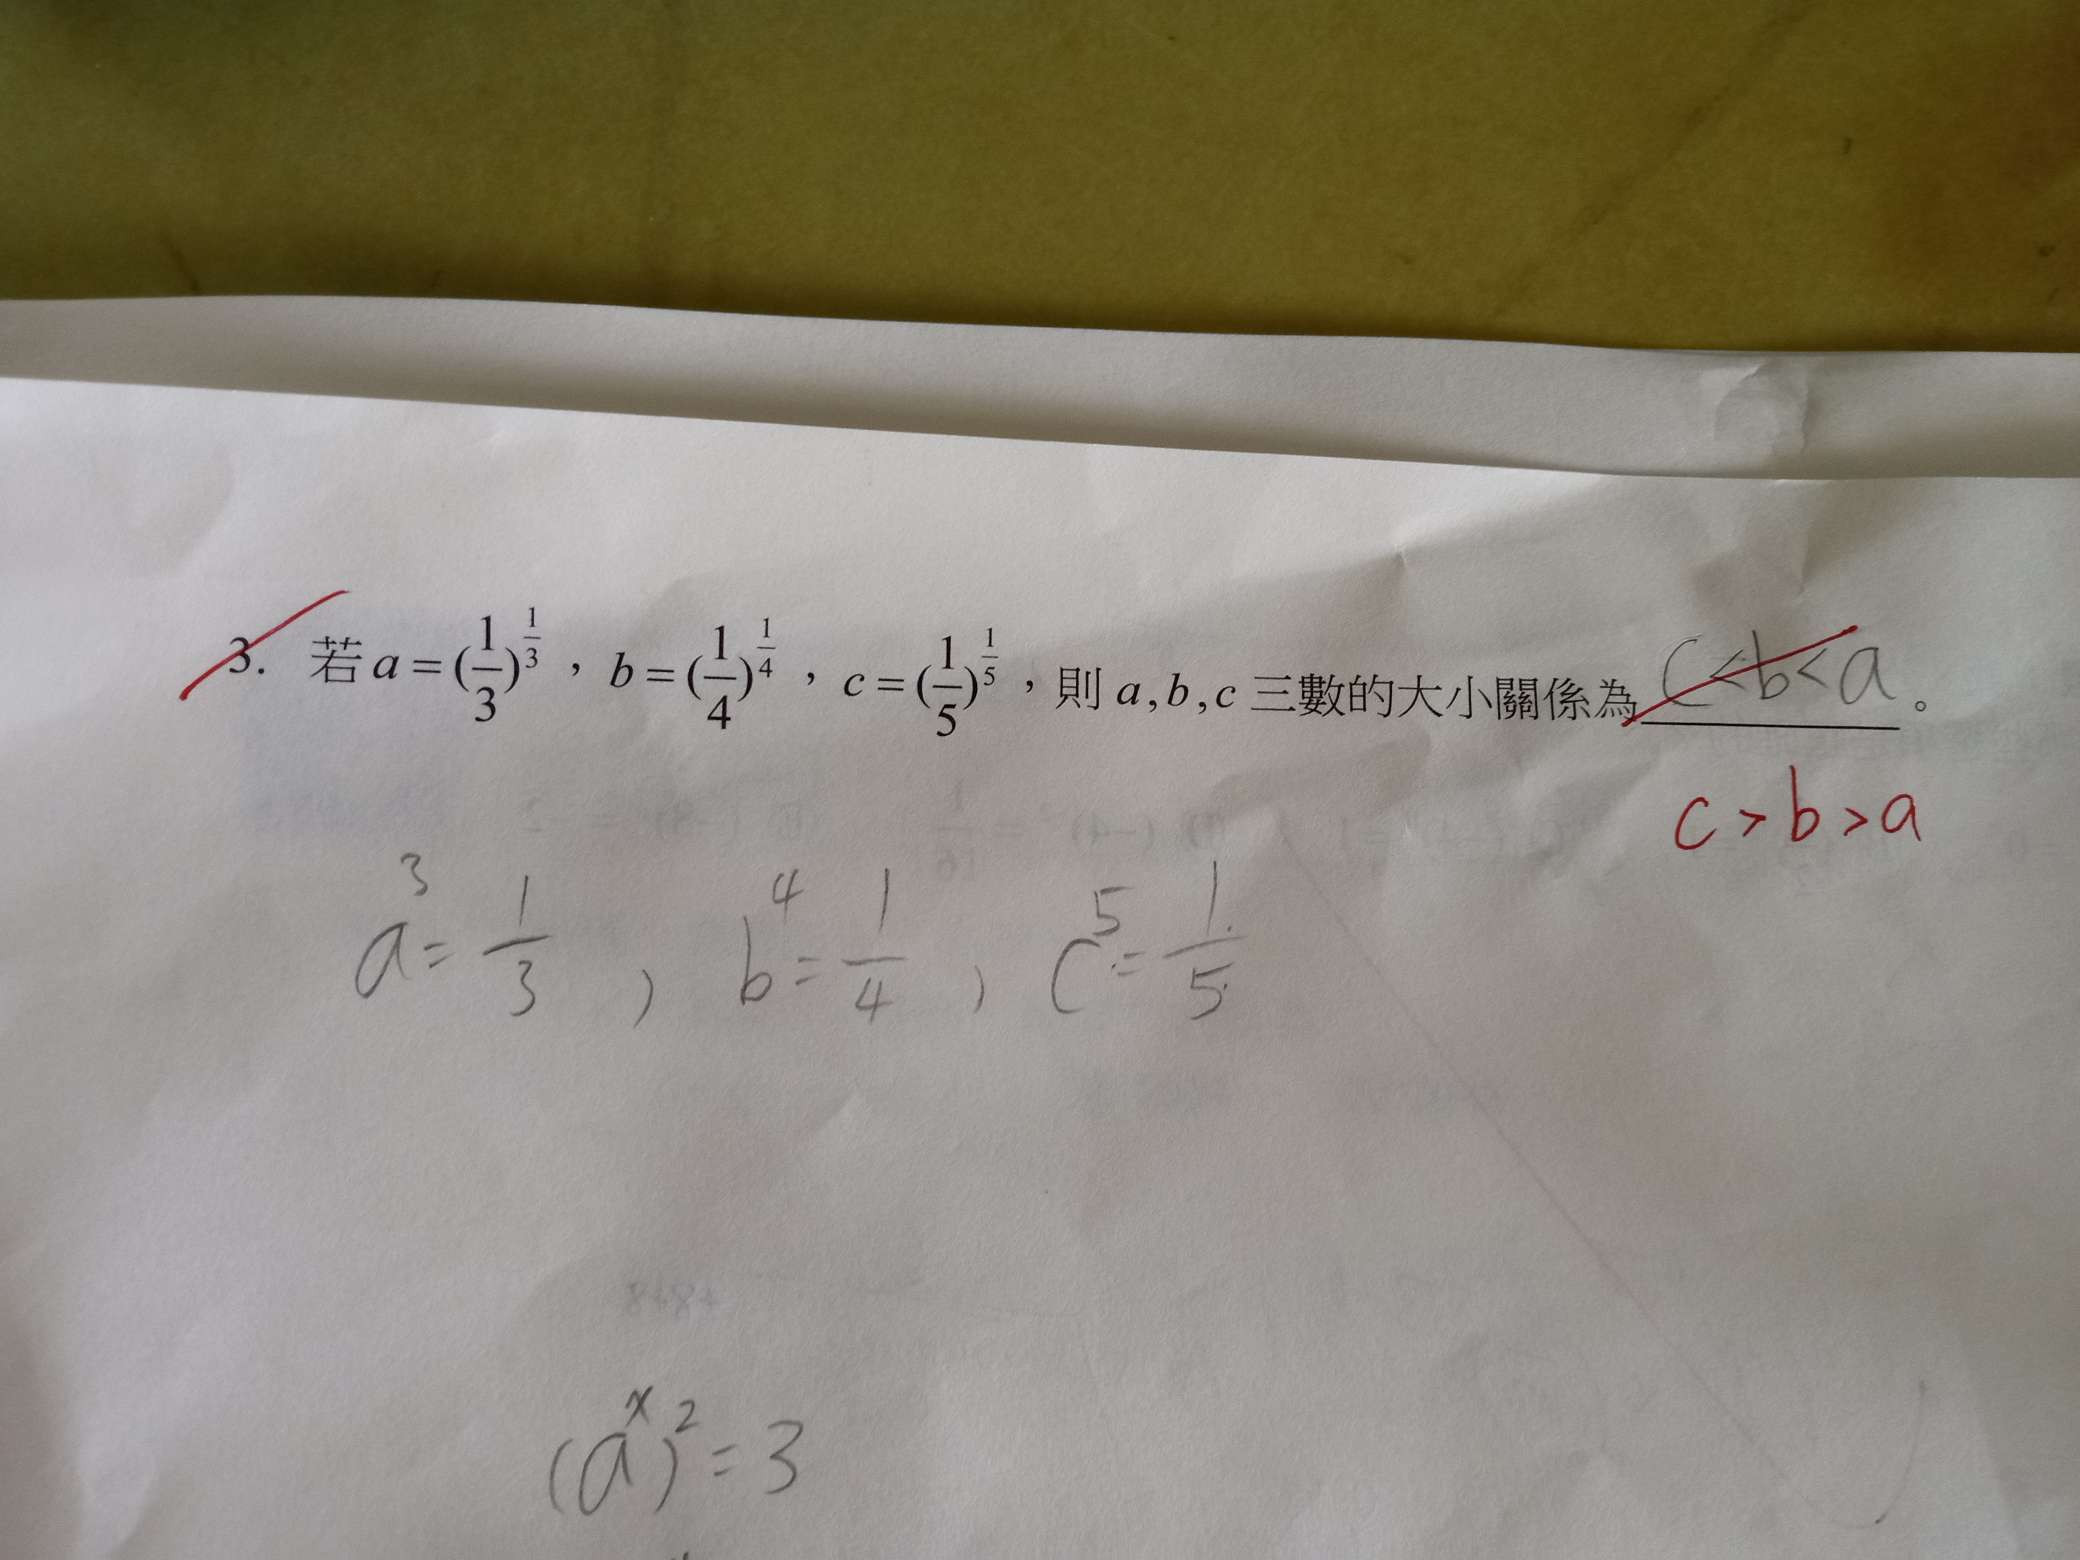 3. 若 a = (1/3)^(1/3) , b = (1/4)^(1/4) , c = (1/5)^(1/5) ,則 a , b , c 三數的大小關係為 c < b < a 。
c > b > a
a³ = 1/3 , b⁴ = 1/4 , c⁵ = 1/5
(a^x)² = 3